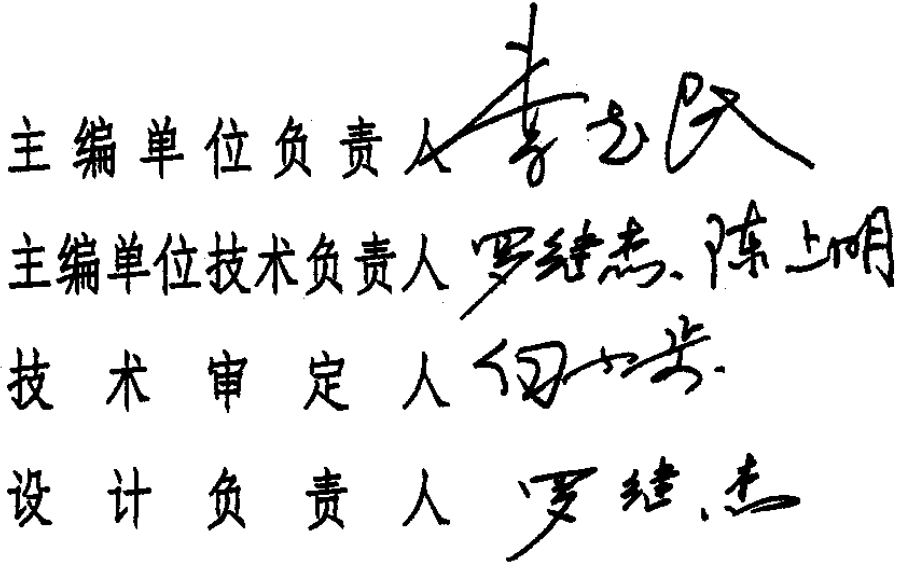 主编单位负责人 李志民
主编单位技术负责人 罗继杰、陈上明
技术审定人
设计负责人 罗继杰